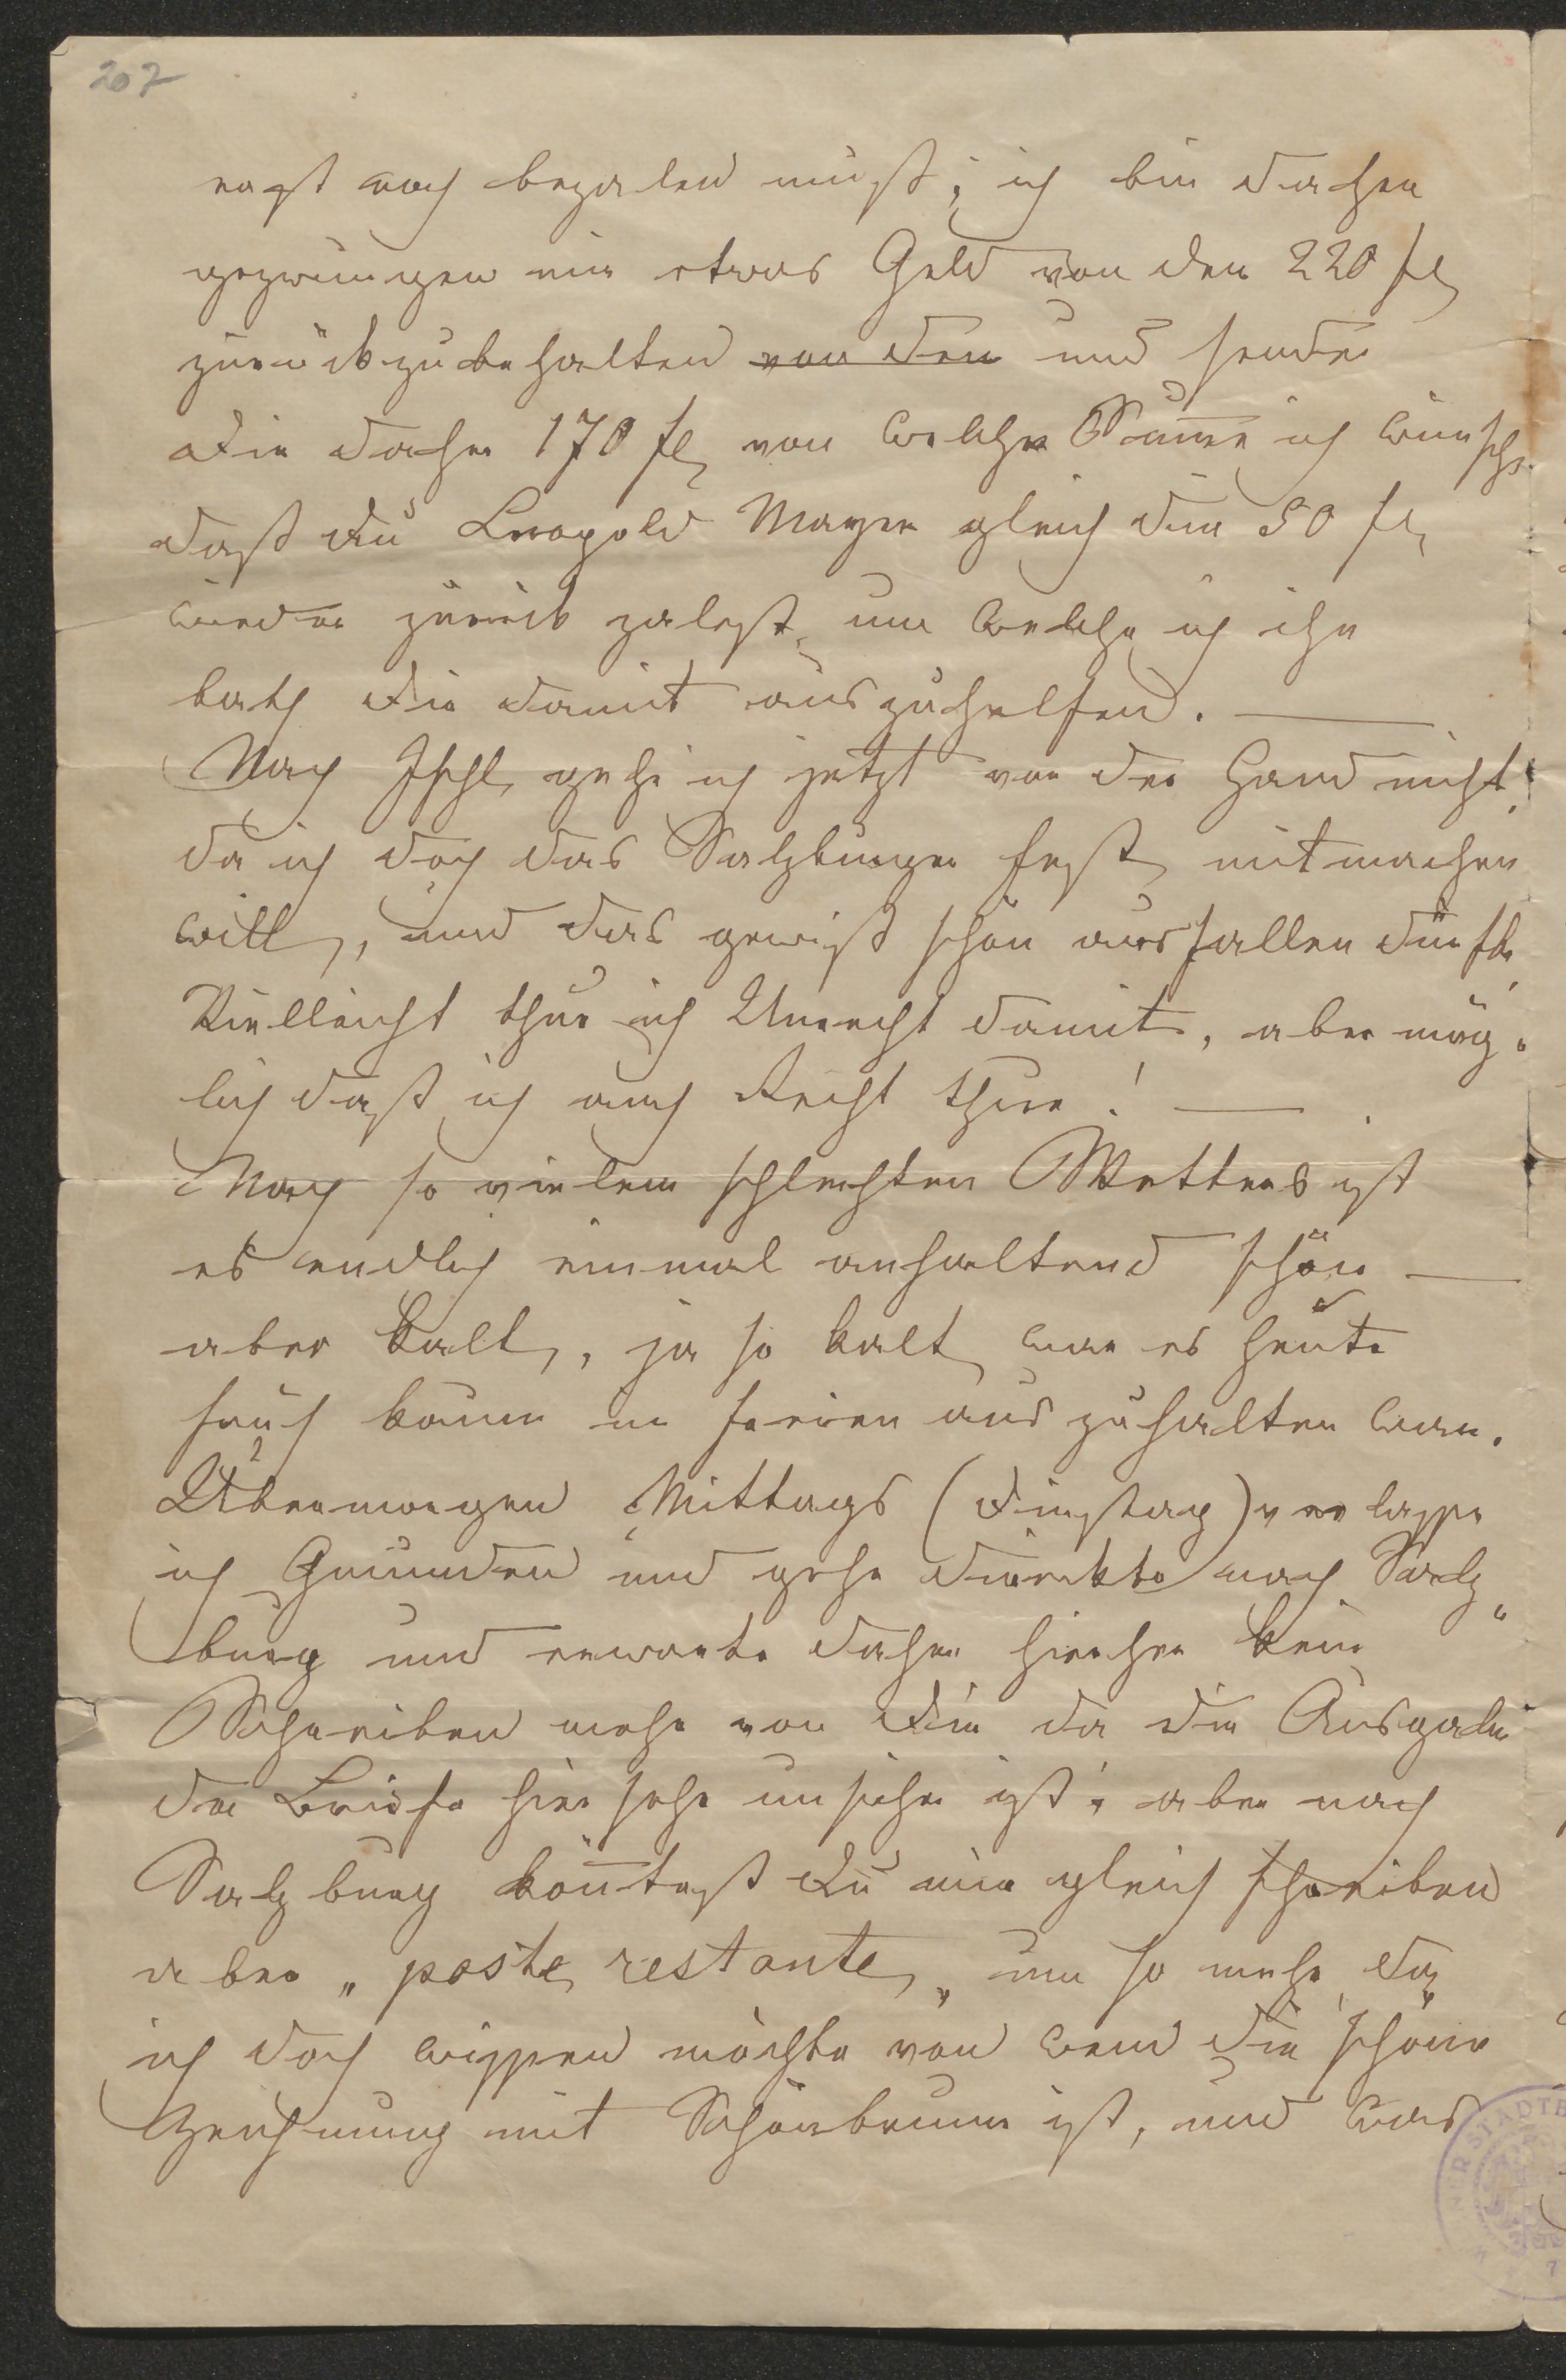 207
erst noch bezalen muß; ich bin daher
gezwungen mir etwas Geld von den 220 fl
zurückzubehalten von den und sende
Dir daher 170 fl von welcher Sum̅e ich wünsche
daß Du Leopold Mayer gleich die 50 fl
wieder zurück zalest, um welche ich ihn
bath Dir damit auszuhelfen. —
Nach Ischl gehe ich jetzt vor der Hand nicht,
da ich doch das Salzburger Fest mitmachen
will, und das gewiß schön ausfallen dürfte,
Vielleicht thue ich Unrecht damit, aber mög-
lich daß ich auch Recht thue! —
Nach so vielem schlechten Wetter ist
es endlich einmal anhaltend schön —
aber kalt, ja so kalt, war es heute
früh kaum im Freien auszuhalten war.
Übermorgen Mittags (Dinstag) verlasse
ich Gmunden und gehe direkte nach Salz„
burg und erwarte daher hierher kein
Schreiben mehr von Dir da die Ausgabe
der Briefe hier sehr unsicher ist; aber nach
Salzburg kön̅test Du mir gleich schreiben
aber „poste restante„ um so mehr, da
ich doch wissen möchte von wem die schöne
Zeichnung mit Schönbrunn ist, und was